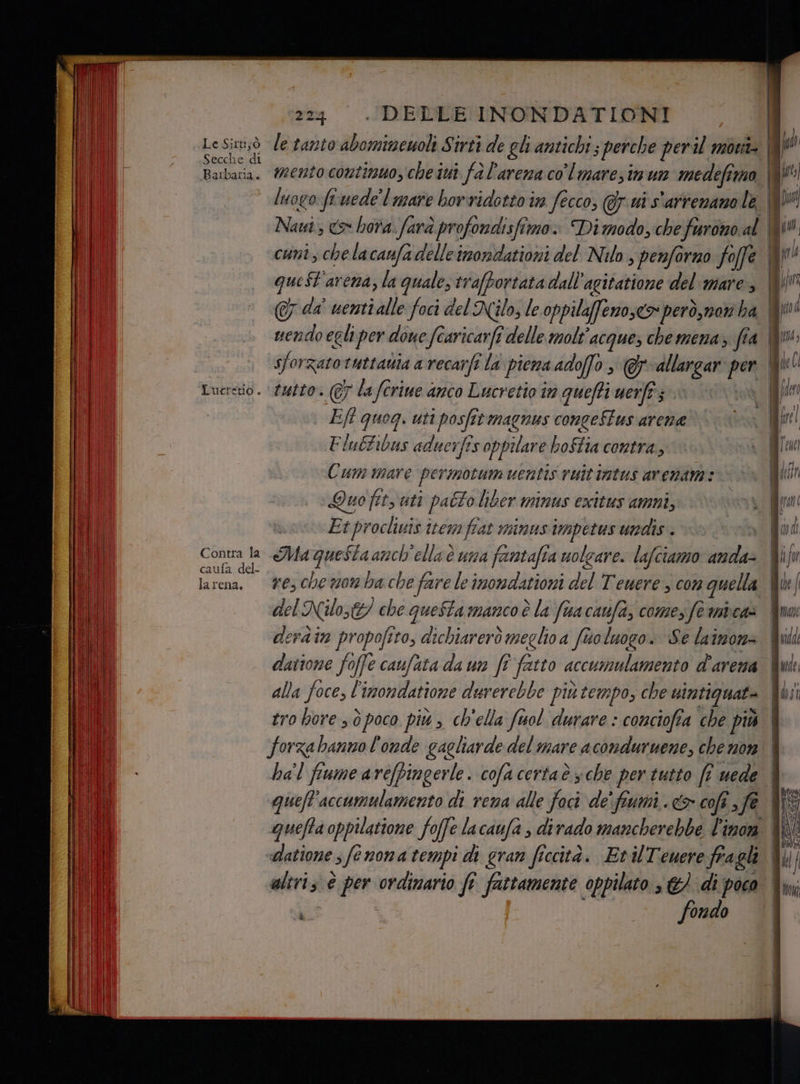 224 DELLE INONDATIONI
Le Sirti, ò
Secche di
Barbaria.
le tanto abomineuoli Sirti de gli antichi; perche per il moui-
mento continuo, che iui fà l'arena co'l mare, in un medesimo
luogo si uede'l mare hor ridotto in secco, & ui s'arrenano le
Naui, & hora sarà profondissimo. Di modo, che furono al
cuni, che la causa delle inondationi del Nilo, pensorno fosse
quest'arena, la quale, trasportata dall'agitatione del mare,
& da' uenti alle foci del Nilo, le oppilasseno, & però, non ha
uendo egli per doue scaricarsi delle molt'acque, che mena, sia
sforzato tuttauia a recarsi la piena adosso, & allargar per
Lucretio.
tutto. & la scriue anco Lucretio in questi uersi;
Est quoq. uti possit magnus congestus arenæ
Fluctibus aduersis oppilare hostia contra,
Cum mare permotum uentis ruit intus arenam:
Quo fit, uti pacto liber minus exitus amni,
Et procliuis item fiat minus impetus undis.
Contra la
causa del-
la rena.
Ma questa anch'ella è una fantasia uolgare. lasciamo anda-
re, che non ha che fare le inondationi del Teuere, con quella
del Nilo, & che questa manco è la sua causa, come, se mi ca-
derà in proposito, dichiarerò meglio a suo luogo. Se la inon-
datione fosse causata da un sì fatto accumulamento d'arena
alla foce, l'inondatione durerebbe più tempo, che uintiquat-
tro hore, ò poco più, ch'ella suol durare: conciosia che più
forza hanno l'onde gagliarde del mare a conduruene, che non
ha'l fiume a respingerle. cosa certa è, che per tutto si uede
quest'accumulamento di rena alle foci de' fiumi. & così, se
questa oppilatione fosse la causa, di rado mancherebbe l'inon
datione, se non a tempi di gran siccità. Et il Teuere fra gli
altri, è per ordinario sì fattamente oppilato, & di poco
fondo